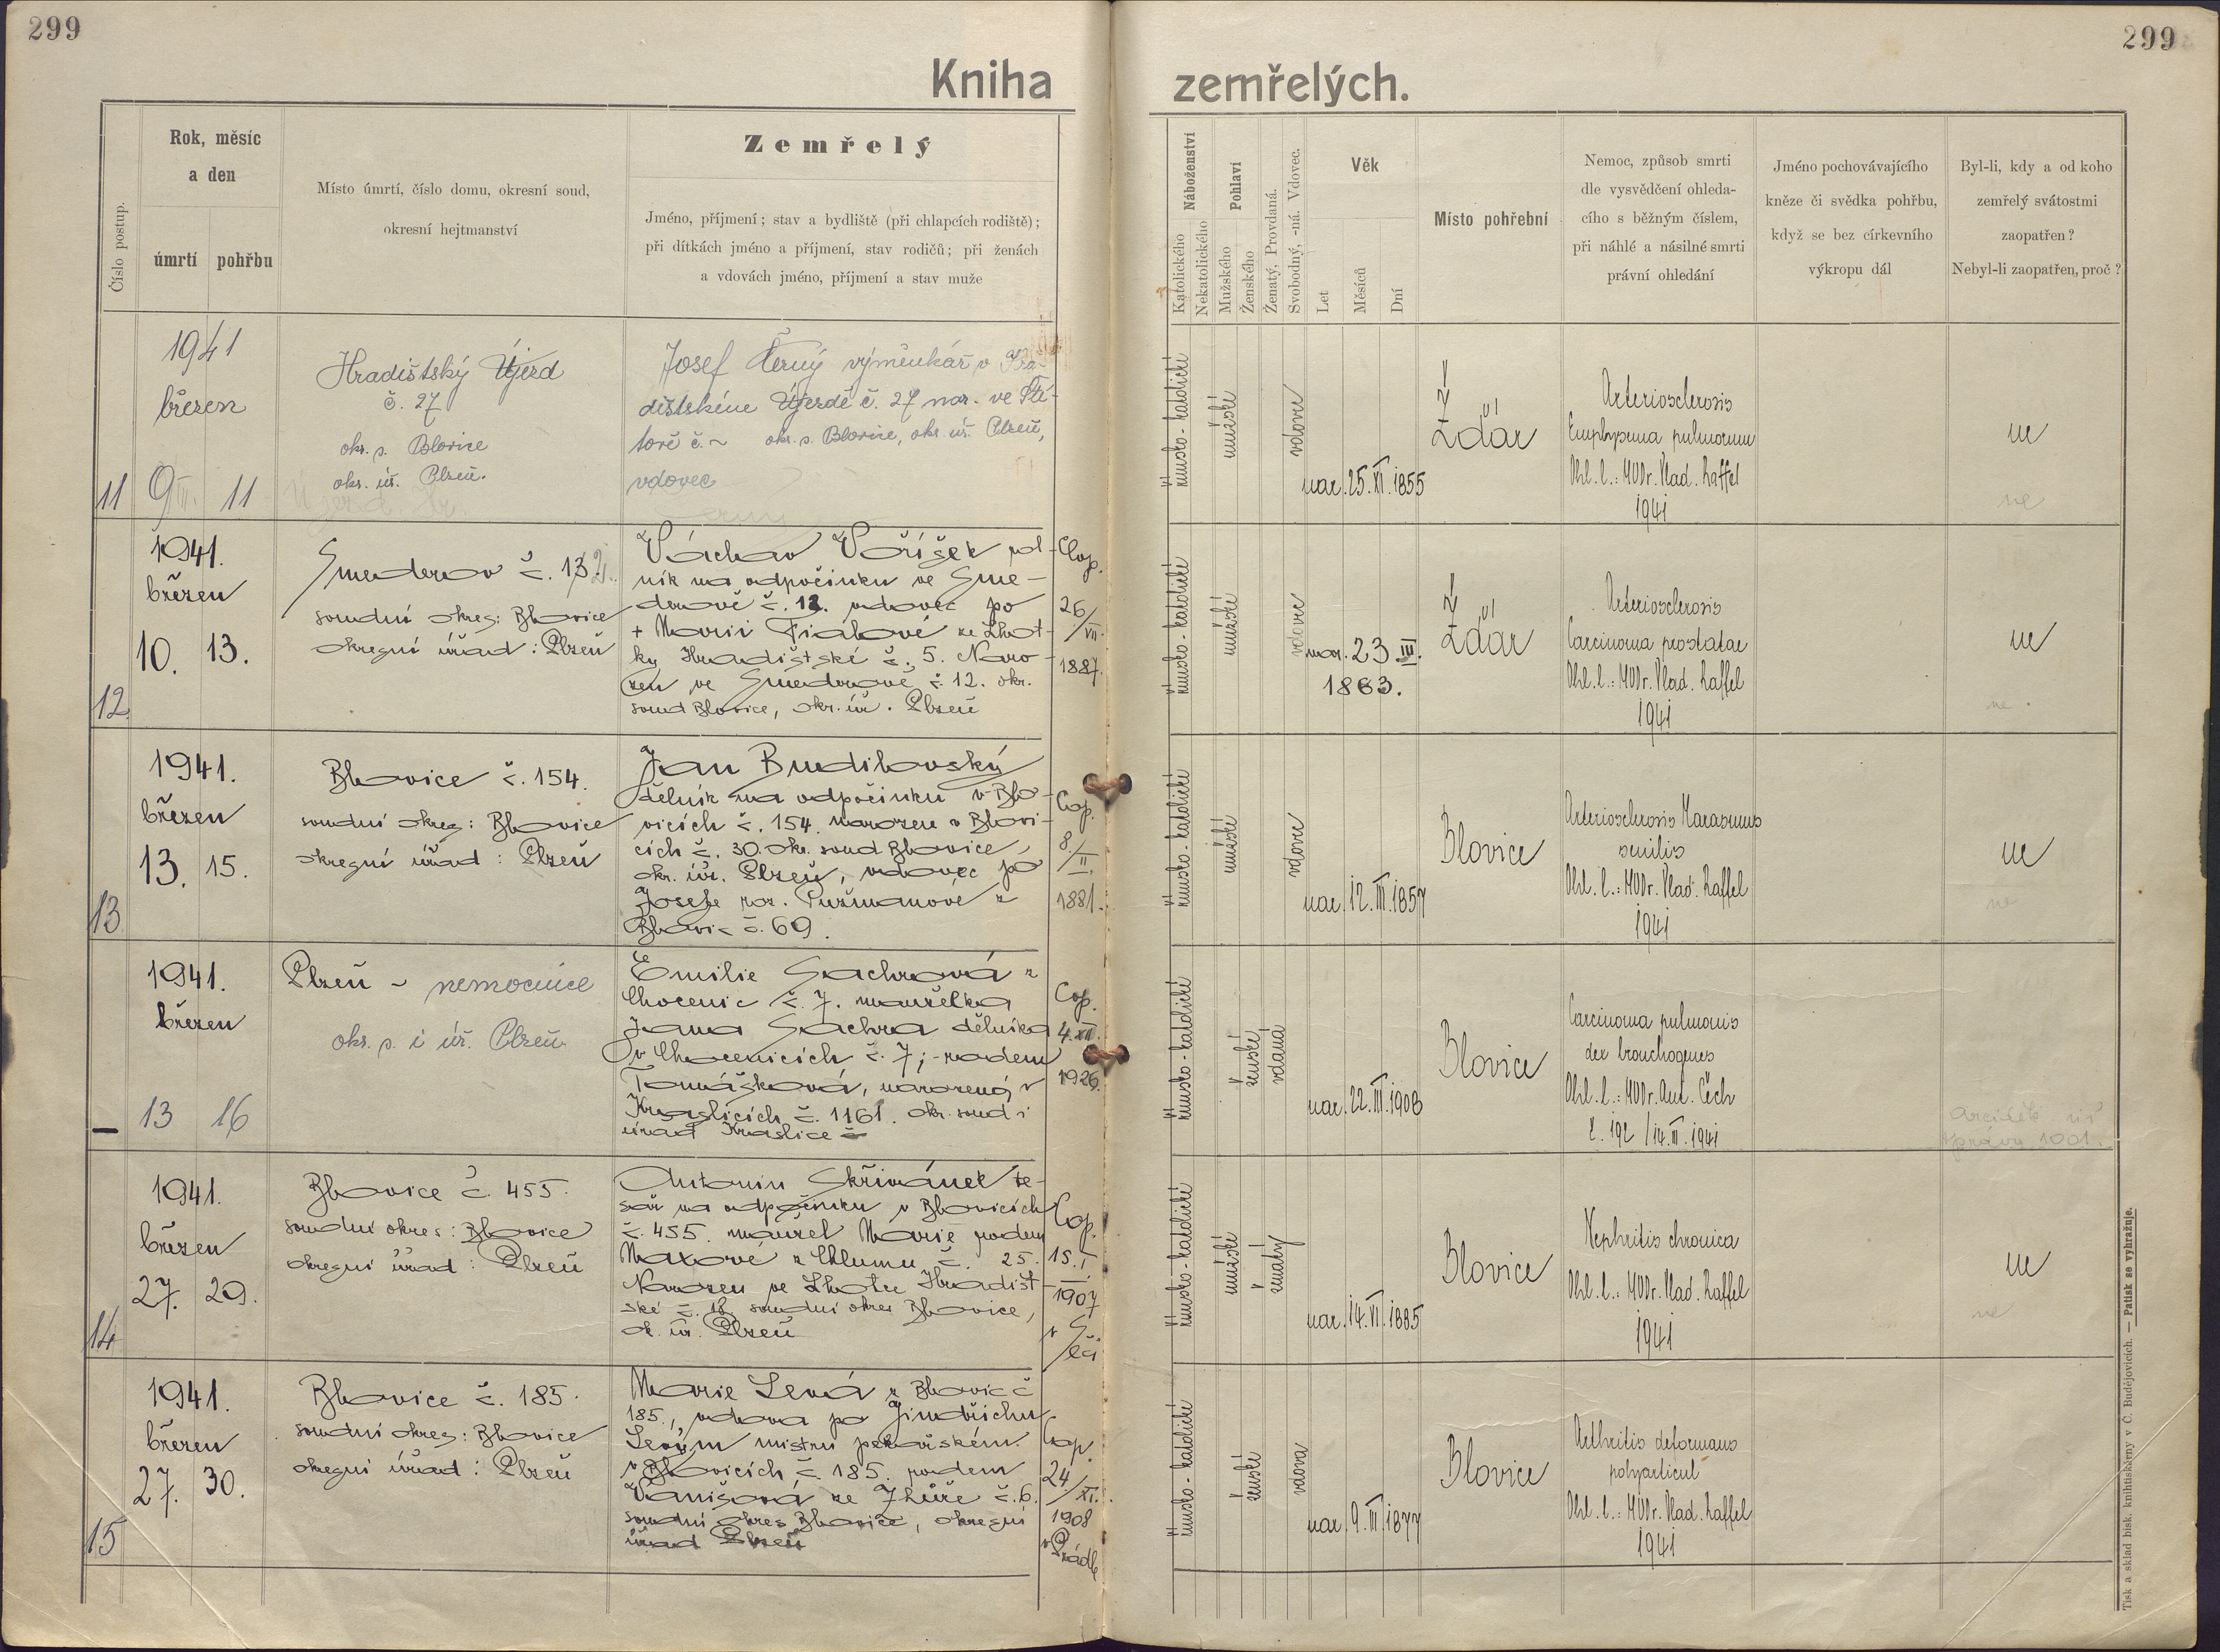 299
299
Kniha zemřelých.
Číslo postup.
Rok, měsíc
a den
úmrtí pohřbu
Místo úmrtí, číslo domu, okresní soud,
okresní hejtmanství
Zemřelý
Jméno, příjmení; stav a bydliště (při chlapcích rodiště);
při dítkách jméno a příjmení, stav rodičů; při ženách
a vdovách jméno, příjmení a stav muže
Náboženství
Katolického
Nekatolického
Pohlaví
Mužského
Ženského
Ženatý, Provdaná.
Svobodný, -ná. Vdovec.
Věk
Let
Měsíců
Dní
Místo pohřební
Nemoc, způsob smrti
dle vysvědčení ohleda-
cího s běžným číslem,
při náhlé a násilné smrti
právní ohledání
Jméno pochovávajícího
kněze či svědka pohřbu,
když se bez církevního
výkropu dál
Byl-li, kdy a od koho
zemřelý svátostmi
zaopatřen?
Nebyl-li zaopatřen, proč?
11
1941
březen
9 III. 11
Hradištský Újezd
č. 27
okr. s. Blovice
okr. úř. Plzeň.
Josef Černý výměnkář v Hra-
dištském Újezdě č. 27 nar. ve Ští-
tově č. ~ okr. s. Blovice, okr. úř. Plzeň,
vdovec
římsko-katolické
mužské
vdovec
nar. 25. XI. 1855
Žďár
Arteriosclerosis
Emphysema pulmonum
Ohl. l.: MUDr. Vlad. Raffel
1941
ne
ne
12
1941.
březen
10. 13.
Smederov č. 132.
soudní okres: Blovice
okresní úřad: Plzeň
Václav Voříšek rol-
ník na odpočinku ve Sme-
derově č. 12. vdovec po
+ Marii Fialové ze Lhot-
ky Hradištské č. 5. Naro-
zen ve Smederově č. 12. okr.
soud Blovice, okr. úř. Plzeň
Cop.
26/VII.
1887.
římsko-katolické
mužské
vdovec
nar. 23 III.
1863.
Žďár
Arteriosclerosis
Carcinoma prostatae
Ohl. l.: MUDr. Vlad. Raffel
1941
ne
ne.
13
1941.
březen
13. 15.
Blovice č. 154.
soudní okres: Blovice
okresní úřad: Plzeň
Jan Budilovský
dělník na odpočinku v Blo-
vicích č. 154. narozen v Blovi-
cích č. 30. okr. soud Blovice,
okr. úř. Plzeň, vdovec po
Josefe roz. Pužmanové z
Blovic č. 69.
Cop.
8./II.
1881.
římsko-katolické
mužské
vdovec
nar. 12. III. 1857
Blovice
Arteriosclerosis Marasmus
senilis
Ohl. l.: MUDr. Vlad. Raffel
1941
ne
ne
1941.
březen
— 13 16
Plzeň - nemocnice
okr. s. i úř. Plzeň
Emilie Sachrová z
Chocenic č. 7. manželka
Jana Sachra dělníka
v Chocenicích č. 7; - rodem
Tomášková, narozená v
Kraslicích č. 1161. okr. soud i
úřad Kraslice
Cop.
4. XII.
1926.
římsko-katolické
ženské
vdaná
nar. 22. III. 1908
Blovice
Carcinoma pulmonis
dex bronchogenes
Ohl. l.: MUDr. Ant. Čech
č. 192 / 14. III. 1941
správy 1001.
14
1941.
březen
27. 29.
Blovice č. 455.
soudní okres: Blovice
okresní úřad: Plzeň
Antonín Skřivánek te-
sař na odpočinku v Blovicích
č. 455. manžel Marie rodem
Maxové z Chlumu č. 25.
Narozen ve Lhotce Hradišt-
ské č. 18 soudní okres Blovice,
ok. úř. Plzeň
Cop.
15. I.
1907
v
římsko-katolické
mužské
ženatý
nar. 14. VI. 1885
Blovice
Nephritis chronica
Ohl. l.: MUDr. Vlad. Raffel
1941
ne
ne
15
1941.
březen
27. 30.
Blovice č. 185.
soudní okres: Blovice
okresní úřad: Plzeň
Marie Levá z Blovic č
185., vdova po Jindřichu
Levým mistru pekařském
v Blovicích č. 185. rodem
Vanišová ze Zhůře č. 6.
soudní okres Blovice, okresní
úřad Plzeň
Cop.
24/XI.
1908
v Prádle
římsko-katolické
ženské
vdova
nar. 9. III. 1877
Blovice
Arthritis deformans
polyarticul
Ohl. l.: MUDr. Vlad. Raffel
1941
Tisk a sklad bisk. knihtiskárny v Č. Budějovicích. — Patisk se vyhražuje.